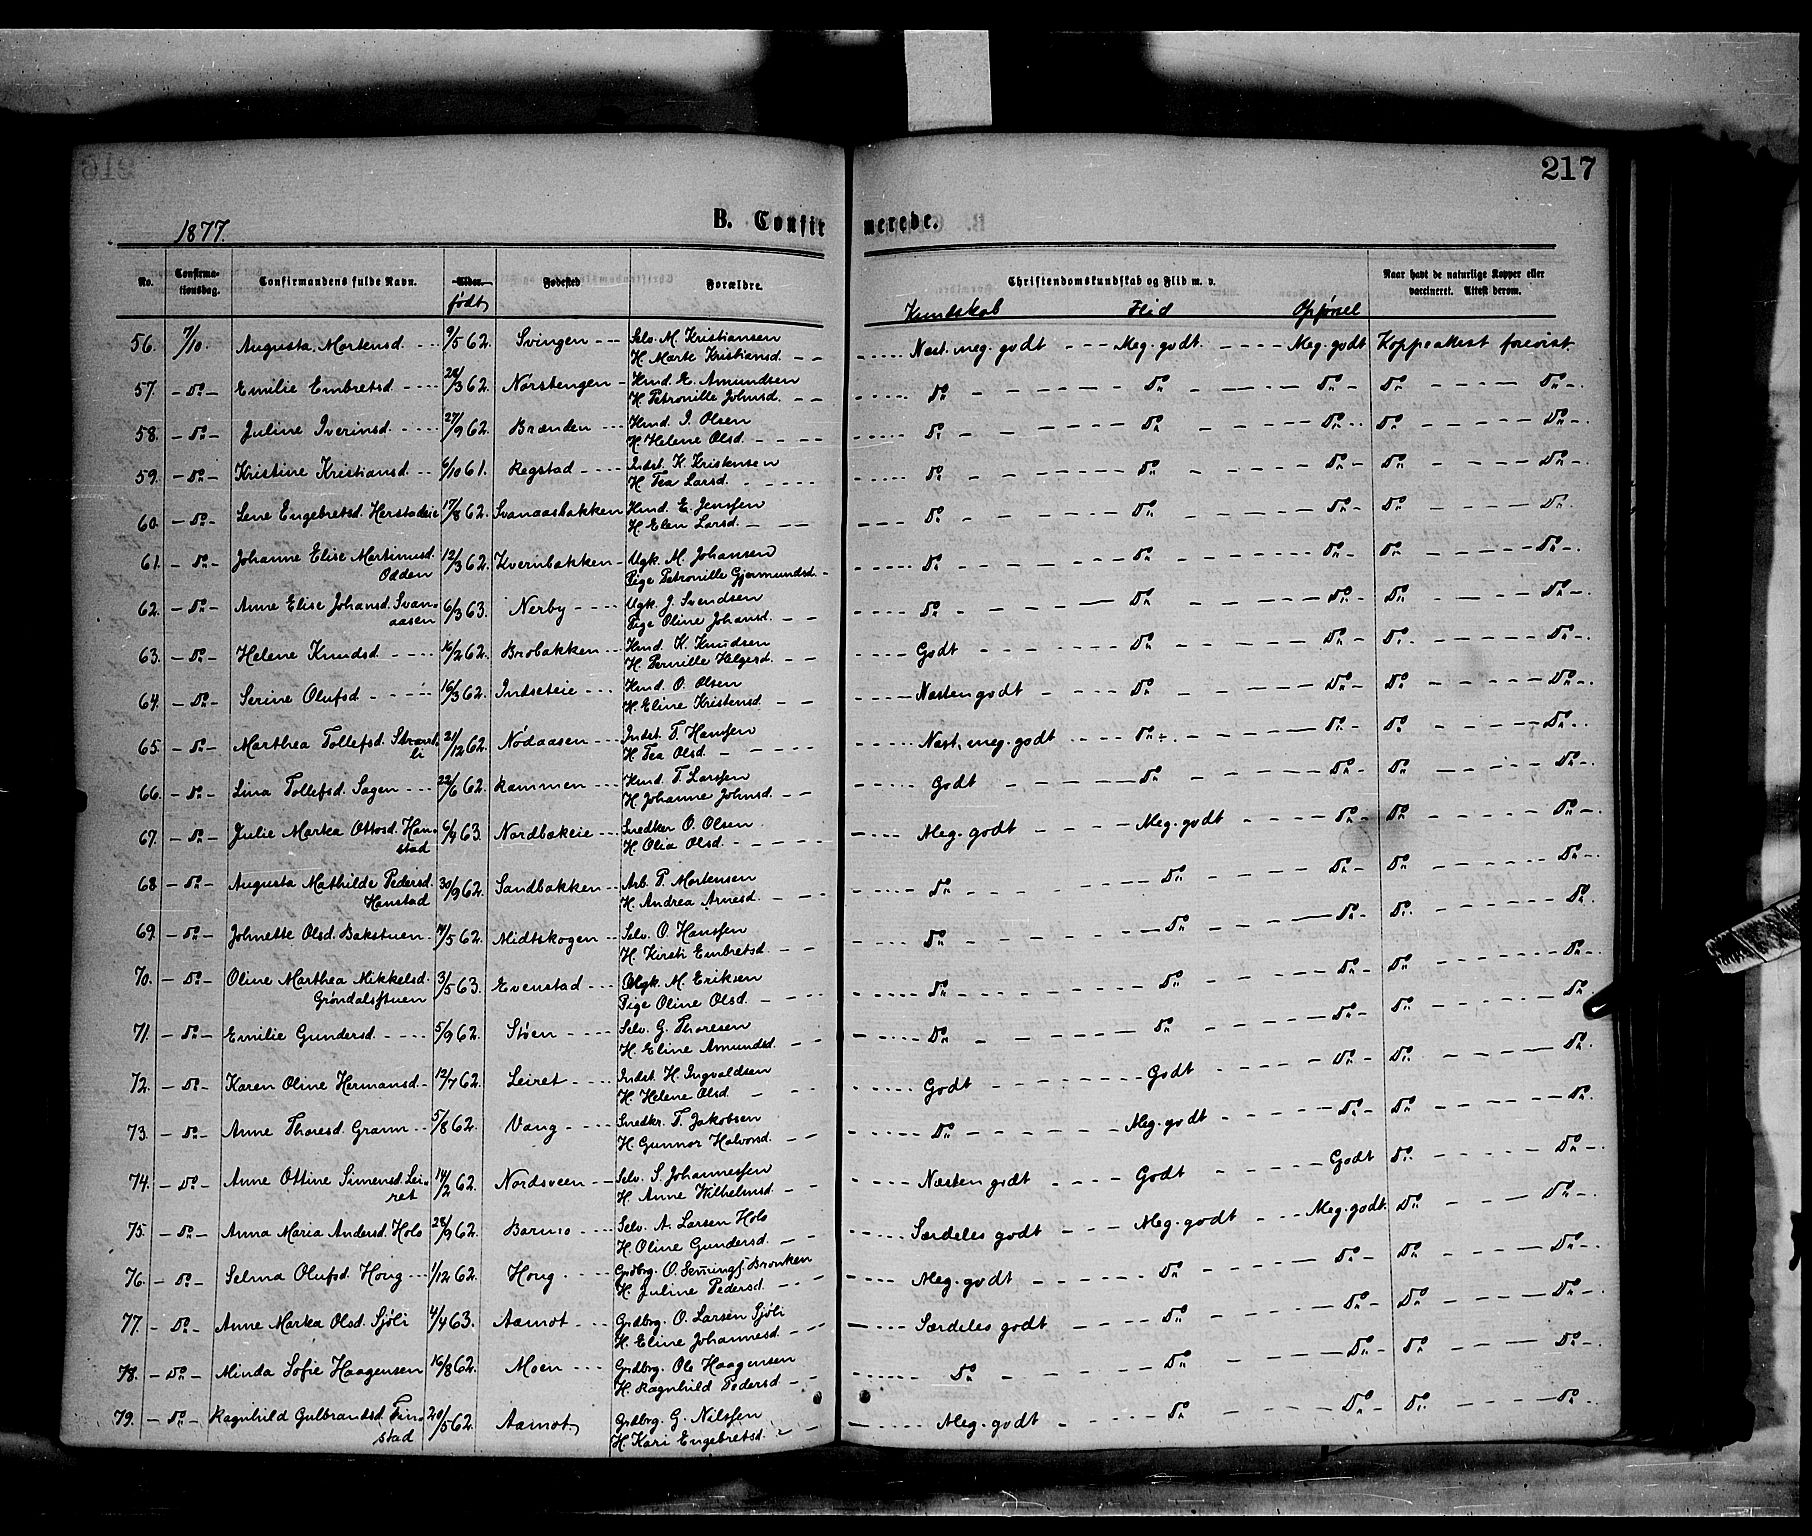 217
1877.
B. Confirmerede.
No. Confirmationsdag. Confirmandens fulde Navn. Alder. født Fødested Forældre. Christendomskundskab og Flid m. v. Kundskab Flid Opførsel Naar havt de naturlige Kopper eller vaccineret. Attest derom.
56. 7/10. Augusta Martensd. 9/5 62. Svingen Selv. M. Kristiansen Næst. meg. godt Meg. godt. Meg. godt Koppeattest forevist.
H. Marte Kristiansd.
57. Do Emilie Embretsd. 28/3 62. Norstengen Hmd. E. Amundsen Do Do Do Do Do
H. Petronille Johnsd.
58. Do Juline Iverinsd. 27/9 62. Brænden Hmd. I. Olsen Do Do Do Do Do
H. Helene Olsd.
59. Do Kristine Kristiansd. 6/10 61. Regstad Indst. K. Kristensen Do Do Do Do Do
H. Tea Larsd.
60. Do Lene Engebretsd. Herstadeie 17/8 62. Svanaasbakken Hmd. E. Jensen Do Do Do Do Do
H. Elen Larsd.
61. Do Johanne Elise Martinusd. Odden 12/3 62. Kvernbakken Ugk. M. Johansen Do Do Do Do Do
Pige Petronille Gjermundsd.
62. Do Anne Elise Johansd. Svanaasen 6/3 63. Nerby Ugk. J. Svendsen Do Do Do Do Do
Pige Oline Johansd.
63. Do Helene Knudsd. 16/2 62. Brobakken Hmd. K. Knudsen Godt Do Do Do Do
H. Pernille Helgesd.
64. Do Serine Olufsd. 16/3 62. Indseteie Hmd. O. Olsen Næsten godt Do Do Do Do
H. Eline Kristensd.
65. Do Marthea Tollefsd. 21/12 62. Nødaasen Indst. T. Hansen Næst. meg. godt Do Do Do Do
H. Tea Olsd.
66. Do Lina Tollefsd. Sagen 22/6 62. Rammen Hmd. T. Larssen Godt Do Do Do Do
H. Johanne Johnsd.
67. Do Julie Marka Ottosd. Hanstad 6/4 63. Nordbakeie Snedker O. Olsen Meg. godt Meg. godt Do Do Do
H. Olia Olsd.
68. Do Augusta Mathilde Pedersd. Hanstad 30/9 62. Sandbakken Arb. P. Mortensen Do Do Do Do Do
H. Andrea Arnesd.
69. Do Johnette Olsd. Bakstuen 14/5 62. Midtskogen Selv. O. Hanssen Do Do Do Do Do
H. Kirsti Embretsd.
70. Do Oline Marthea Mikkelsd. Grøndalsstuen 3/5 63. Evenstad Ugk. M. Eriksen Do Do Do Do Do
Pige Oline Olsd.
71. Do Emilie Gundersd. 5/9 62. Støen Selv. G. Thoresen Do Do Do Do Do
H. Eline Amundsd.
72. Do Karen Oline Hermansd. 12/7 62. Leiret Indst. H. Ingvaldsen Godt Godt Do Do Do
H. Helene Olsd.
73. Do Anne Thoresd. Gram 5/8 62. Vang Snedkr. T. Jakobsen Do Meg. godt Do Do Do
H. Gunnor Halvorsd.
74. Do Anne Ottine Simensd. Leiret 14/2 62. Nordsveen Selv. S. Johannessen Næsten godt Godt Godt Do Do
H. Anne Wilhelmsd.
75. Do Anna Maria Andersd. Holo 28/9 62. Barmo Selv. A. Larsen Holo Særdeles godt Meg. godt Meg. godt. Do Do
H. Oline Gundersd.
76. Do Selma Olufsd. Houg 1/12 62. Houg Grdbrg. O. Semingj. Bronken Meg. godt Do Do Do Do
H. Juline Pedersd.
77. Do Anne Marka Olsd. Sjøli 4/4 63. Aamot Grdbrg. O. Larsen Sjøli Særdeles godt Do Do Do Do
H. Eline Johannesd.
78. Do Minda Sofie Haagensen 16/8 62. Moen Grdbrg. Ole Haagensen Do Do Do Do Do
H. Ragnhild Pedersd.
79. Do Ragnhild Gulbrandsd. Finstad 20/5 62. Aamot Grdbrg. G. Nilssen Meg. godt Do Do Do Do
H. Kari Engebretsd.